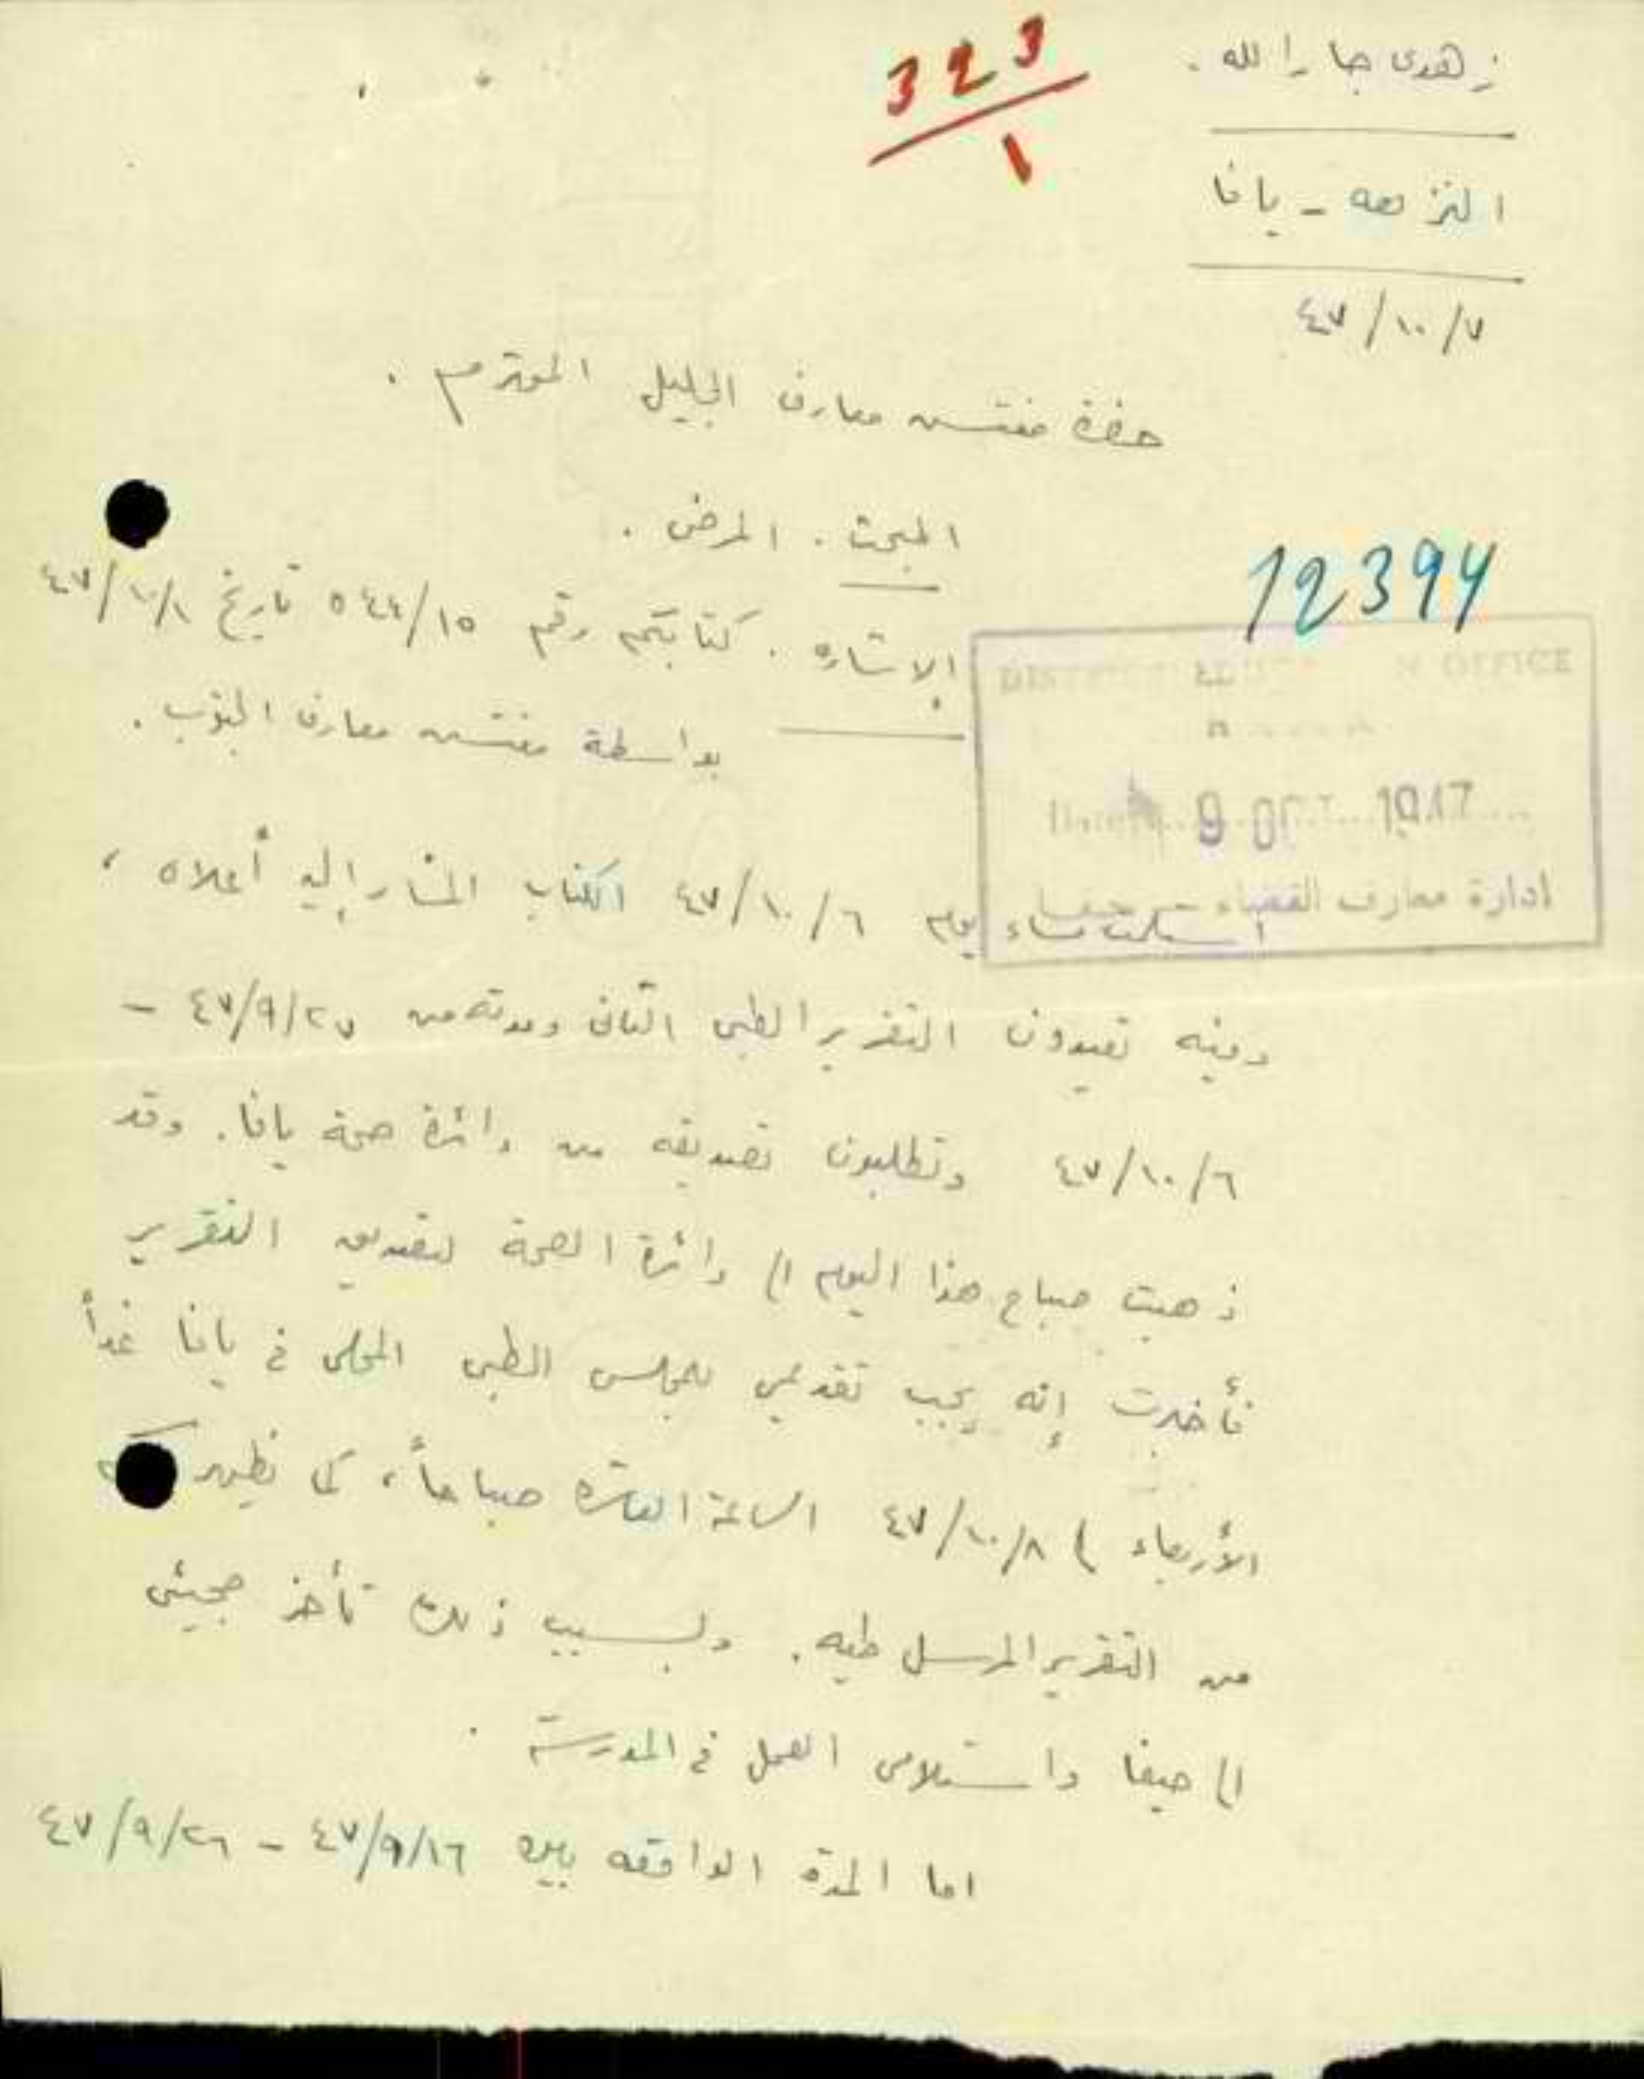 زهدى جارالله.
323
1
النزهه - يافا
٤٧/١٠/٧
حضرة مفتش معارف الجليل المحترم.
المبحث. المرض.
12394
الاشاره. كتابكم رقم ٥٤٤/١٥ تاريخ ٤٧/١٠/١
بواسطة مفتش معارف الجنوب.
DISTRICT EDUCATION OFFICE
9 OCT 1947
ادارة معارف القضاء - حيفا
استلمت مساء يوم ٤٧/١٠/٦ الكتاب المشار إليه أعلاه،
وفيه تعيدون التقرير الطبى الثانى ومدته من ٤٧/٩/٢٧ -
٤٧/١٠/٦ وتطلبون تصديقه من دائرة صحة يافا. وقد
ذهبت صباح هذا اليوم الى دائرة الصحة لتصديق التقرير
فأخبرت إنه يجب تقديمي للمجلس الطبى المحلى في يافا غداً
الأربعاء في ٤٧/١٠/٨ الساعة العاشرة صباحاً، كما يظهر لكم
من التقرير المرسل طيه. وبسبب ذلك تأخر مجيئى
الى حيفا واستلامى العمل في المدرسة.
اما المدة الواقعه بين ٤٧/٩/١٦ - ٤٧/٩/٢٦